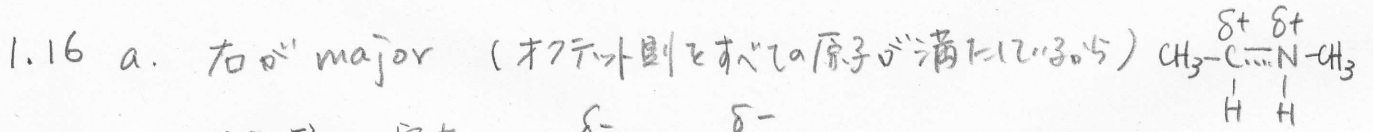 1.16 a. 右が major (オクテット則をすべての原子が満たしているから)
δ+ δ+
CH3-C=N-CH3
H H
δ- δ-